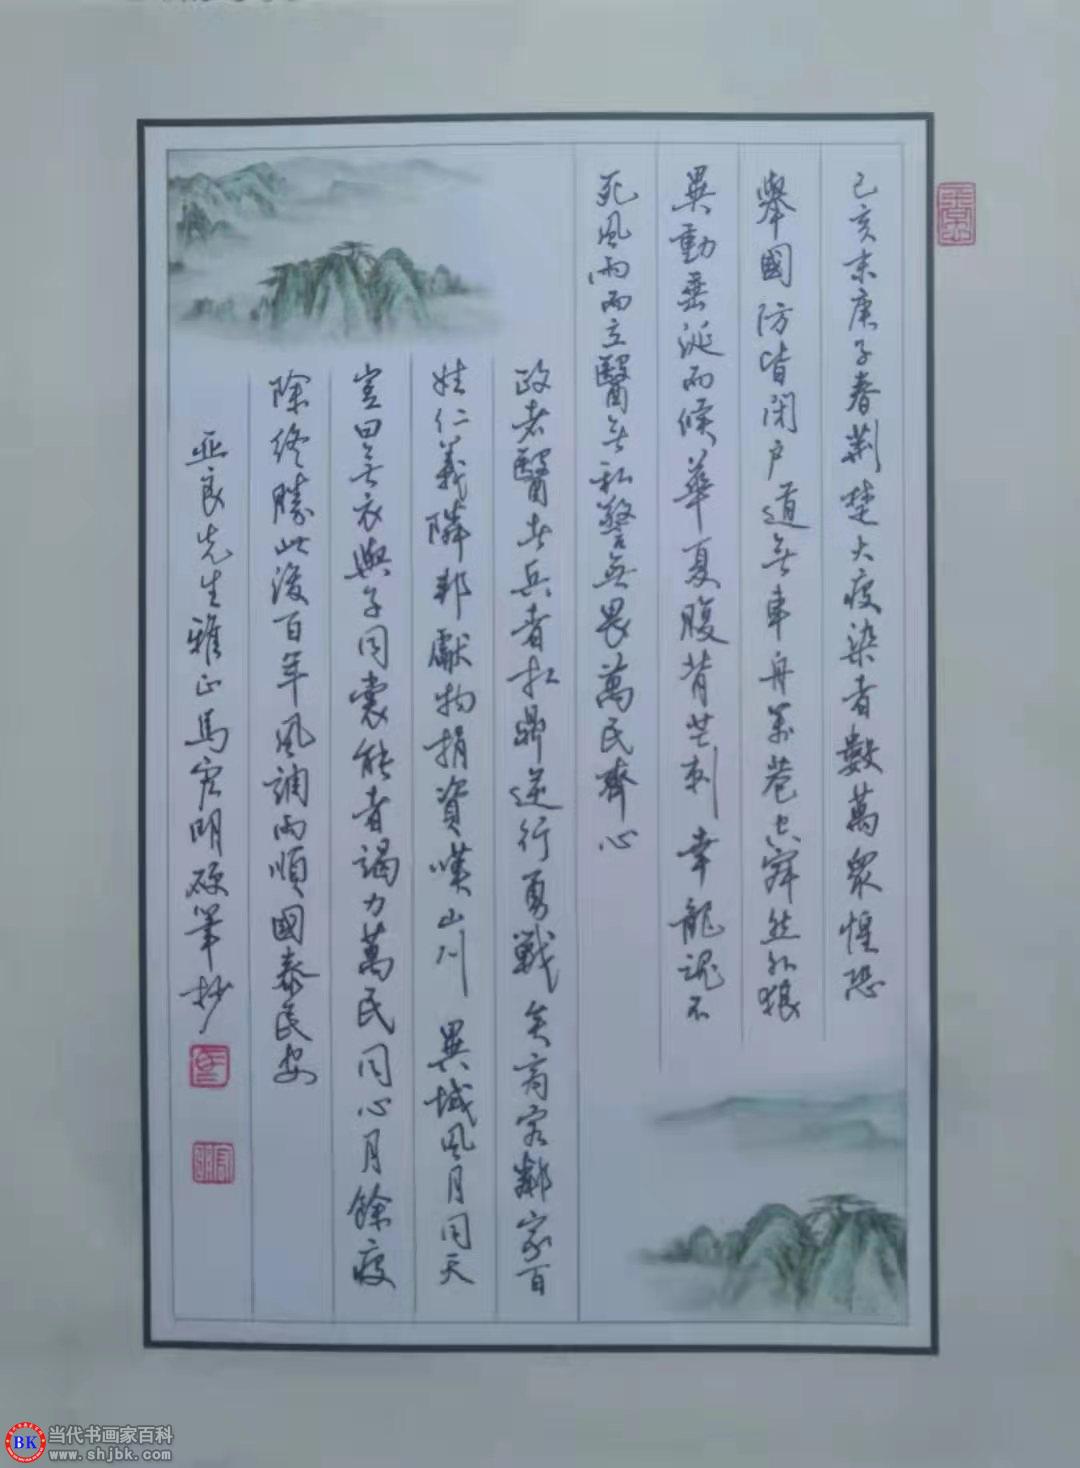 己亥末庚子春荆楚大疫染者數萬眾惶恐
舉國防皆閉户道無車舟萬巷空寂然外狼
異動垂涎而候華夏腹背芒刺幸龍魂不
死風雨而立醫無私警無畏萬民齊心
政者醫者兵者扛鼎逆行勇戰矣商客鄰家百
姓仁義隣邦獻物捐資嘆山川異域風月同天
豈曰無衣與子同裳能者竭力萬民同心月餘疫
除終勝此後百年風調雨順國泰民安
亚良先生雅正馬明硬筆抄
BK
当代书画家百科
www.shjbk.com